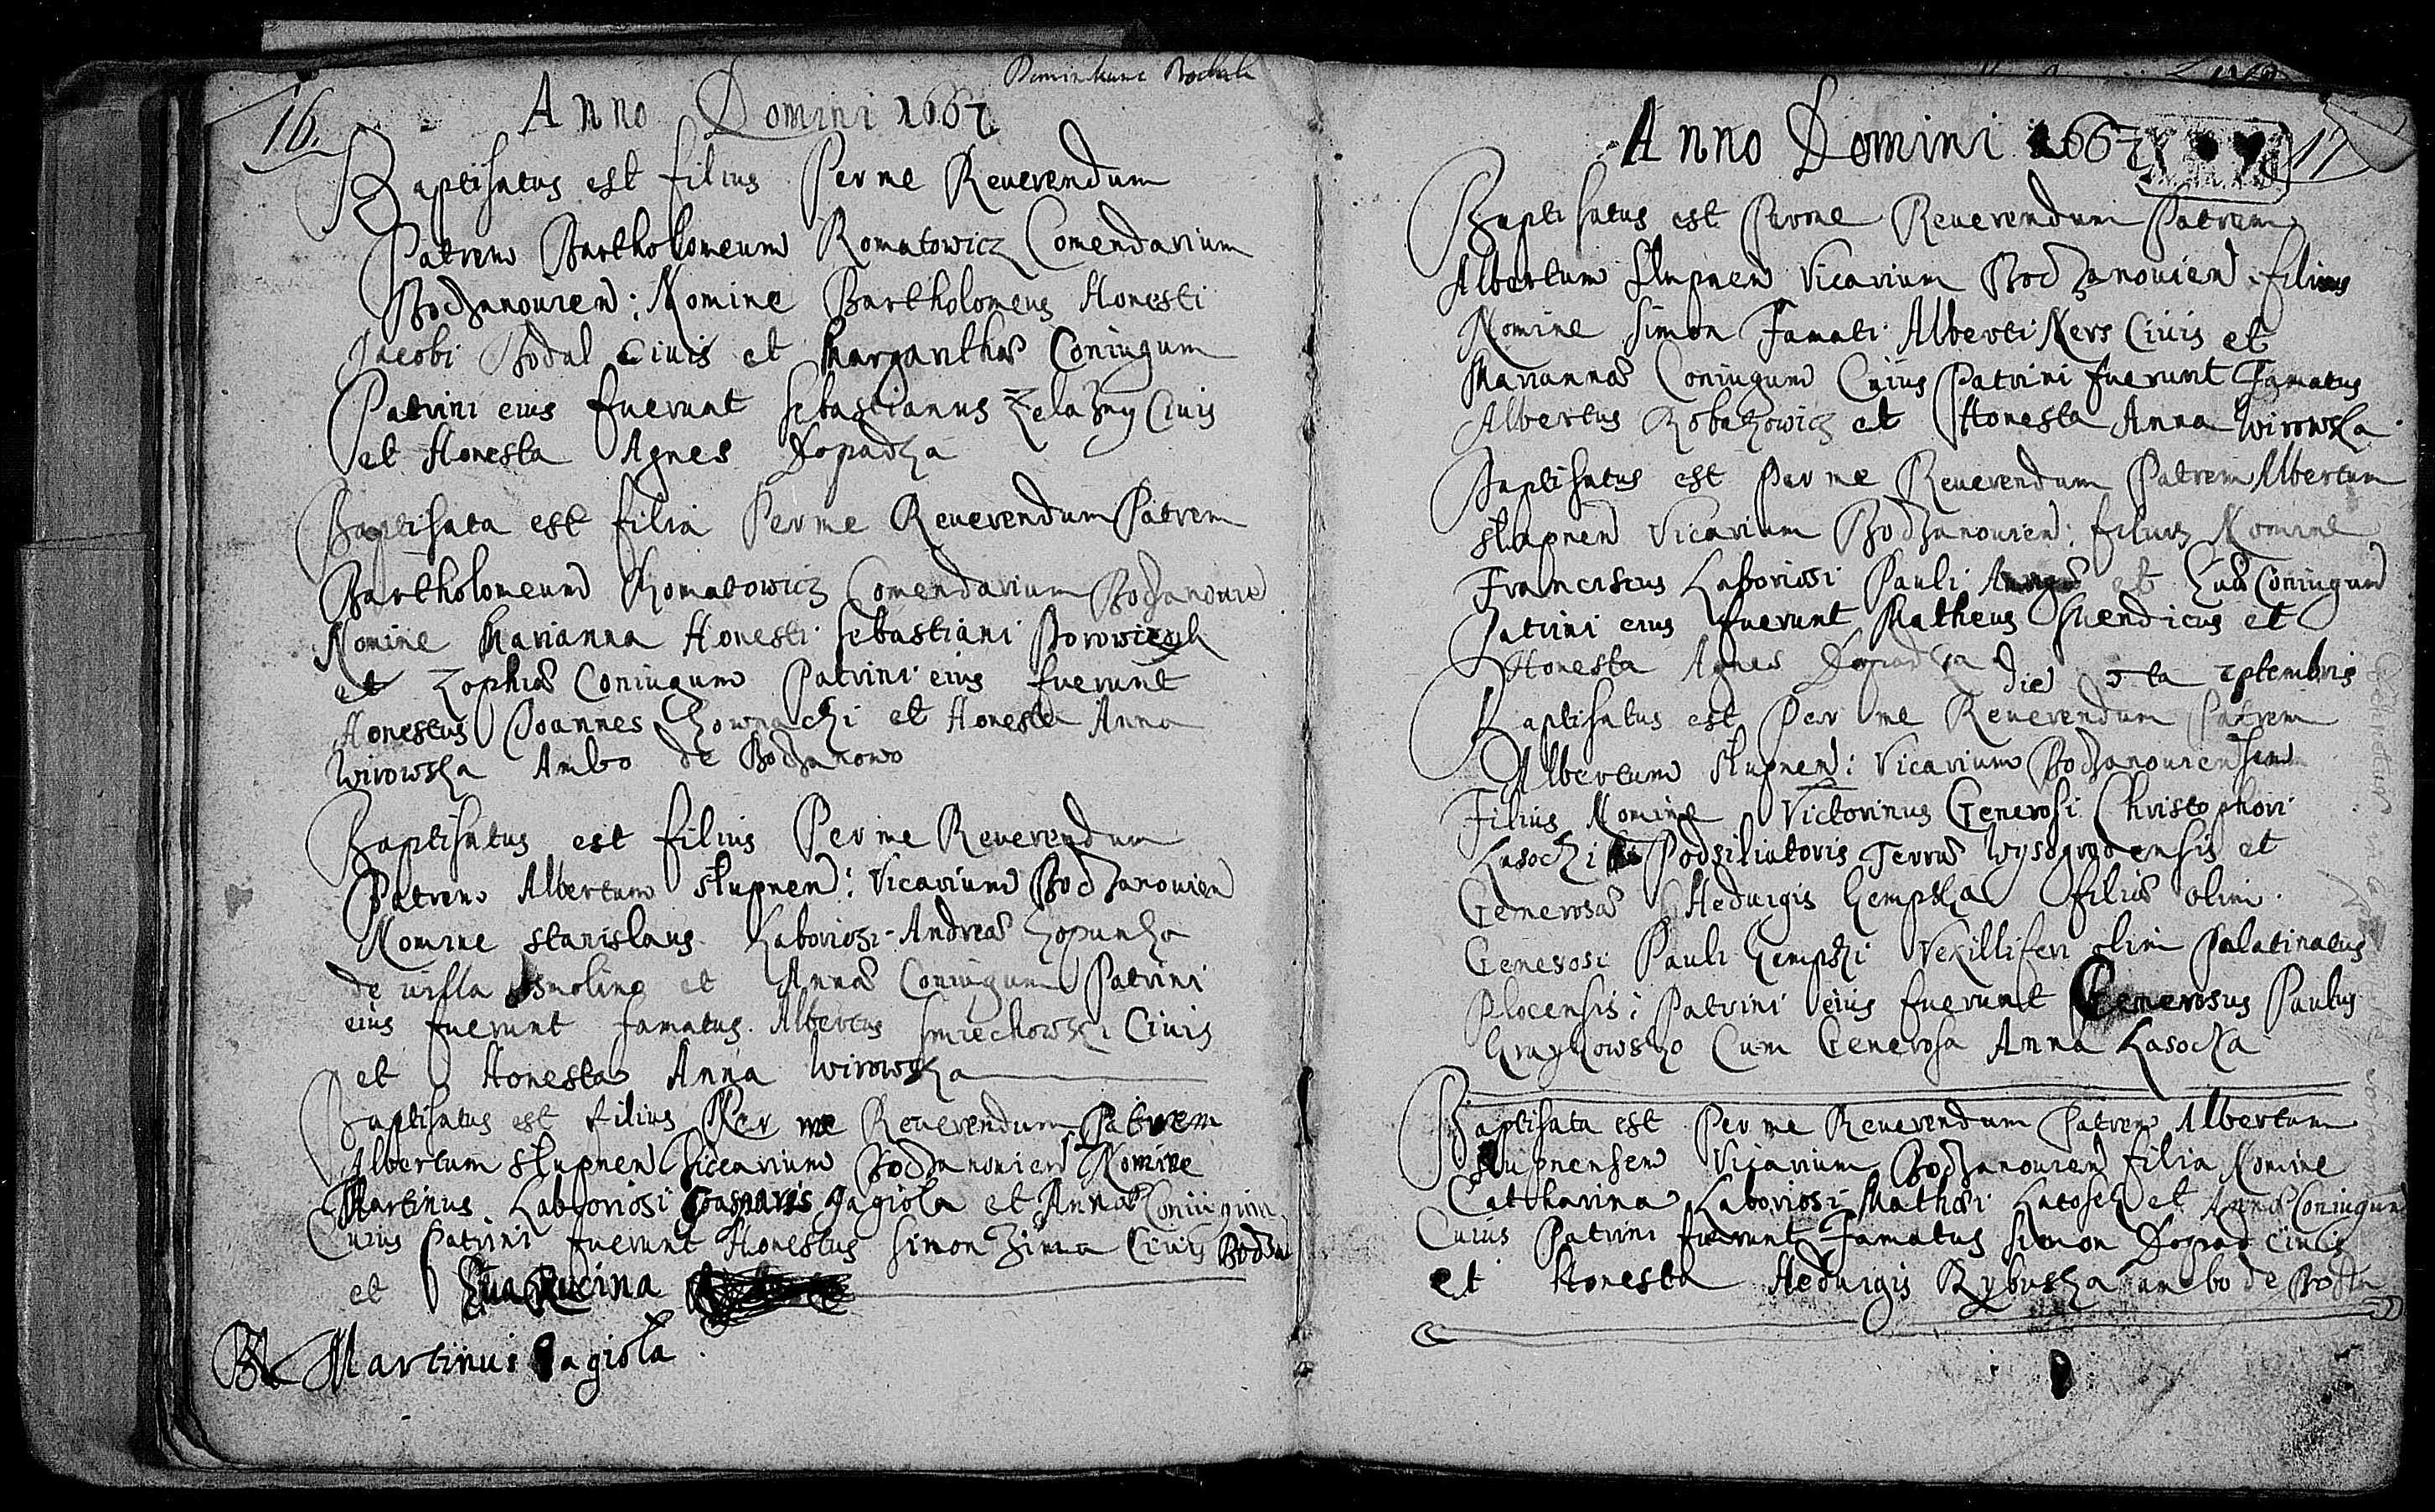 16.
Anno Domini 1667
Baptisatus est filius Per me Reuerendum
Patrem Bartholomeum Romatowicz Comendarium
Bodzanouien: Nomine Bartholomeus Honesti
Jacobi Bodul Ciuis et Margarithæ Coniugum
Patrini eius fuerunt Sebastianus Zelazny Ciuis
et Honesta Agnes Dopadka
Baptisata est filia Per me Reuerendum Patrem
Bartholomeum Romatowicz Comendarium Bodzanouie
Nomine Marianna Honesti Sebastiani
et Zophiæ Coniugum Patrini eius fuerunt
Honestus Joannes et Honesta Anna
Wirowska Ambo de Bodzanowo
Baptisatus est filius Per me Reuerendum
Patrem Albertum Slupnen: Vicarium Bodzanouien
Nomine Stanislaus Laboriosi Andreæ
de uilla Smolino et Annæ Coniugum Patrini
eius fuerunt Famatus Albertus Smiechowski Ciuis
et Honesta Anna Wirowska
Baptisatus est filius Per me Reuerendum Patrem
Albertum Slupnen Vicarium Bodzanouien Nomine
Martinus Laboriosi Casparis Jagiola et Annæ Coniugum
Cuius Patrini fuerunt Honestus Simon Zima Ciuis Bodza
et Eua Rucina
Martinus Jagiola
Anno Domini 1667
17
Baptisatus est Per me Reuerendum Patrem
Albertum Slupnen Vicarium Bodzanouien filius
Nomine Simon Famati Alberti Kers Ciuis et
Mariannæ Coniugum Cuius Patrini fuerunt Famatus
Albertus Robakowicz et Honesta Anna Wirowska
Baptisatus est Per me Reuerendum Patrem Albertum
Slupnen Vicarium Bodzanouien: filius Nomine
Franciscus Laboriosi Pauli et Euæ Coniugum
Patrini eius fuerunt Matheus Suendicus et
Honesta Agnes Dopadka
die 5 ta 7ptembris
Baptisatus est Per me Reuerendum Patrem
Albertum Slupnen: Vicarium Bodzanouiensem
Filius Nomine Victorinus Generosi Christophori
Lasocki Podsiliatoris Terræ Wysogrodensis et
Generosæ Heduigis Kempska filiæ olim
Generosi Pauli Kempski Vexilliferi olim Palatinatus
Plocensis: Patrini eius fuerunt Generosus Paulus
Cum Generosa Anna Lasocka
Baptisata est Per me Reuerendum Patrem Albertum
Slupnensem Vicarium Bodzanouien filia Nomine
Catharina Laboriosi Mathæi Latosek et Agnæ Coniugum
Cuius Patrini fuerunt Famatus Simon Dopad Ciuis
et Honesta Heduigis Rybuska ambo de Bodza